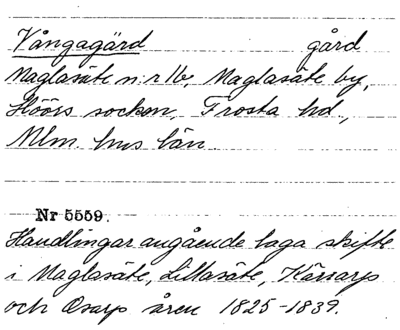 Vångagärd gård
Maglasäte n:r 16, Maglasäte by,
Höörs socken, Frosta hd.,
Mlm. hus län.
Nr 5559.
Handlingar angående laga skifte
i Maglasäte, Lillasäte, Kärrarp
och Osarp åren 1825-1839.